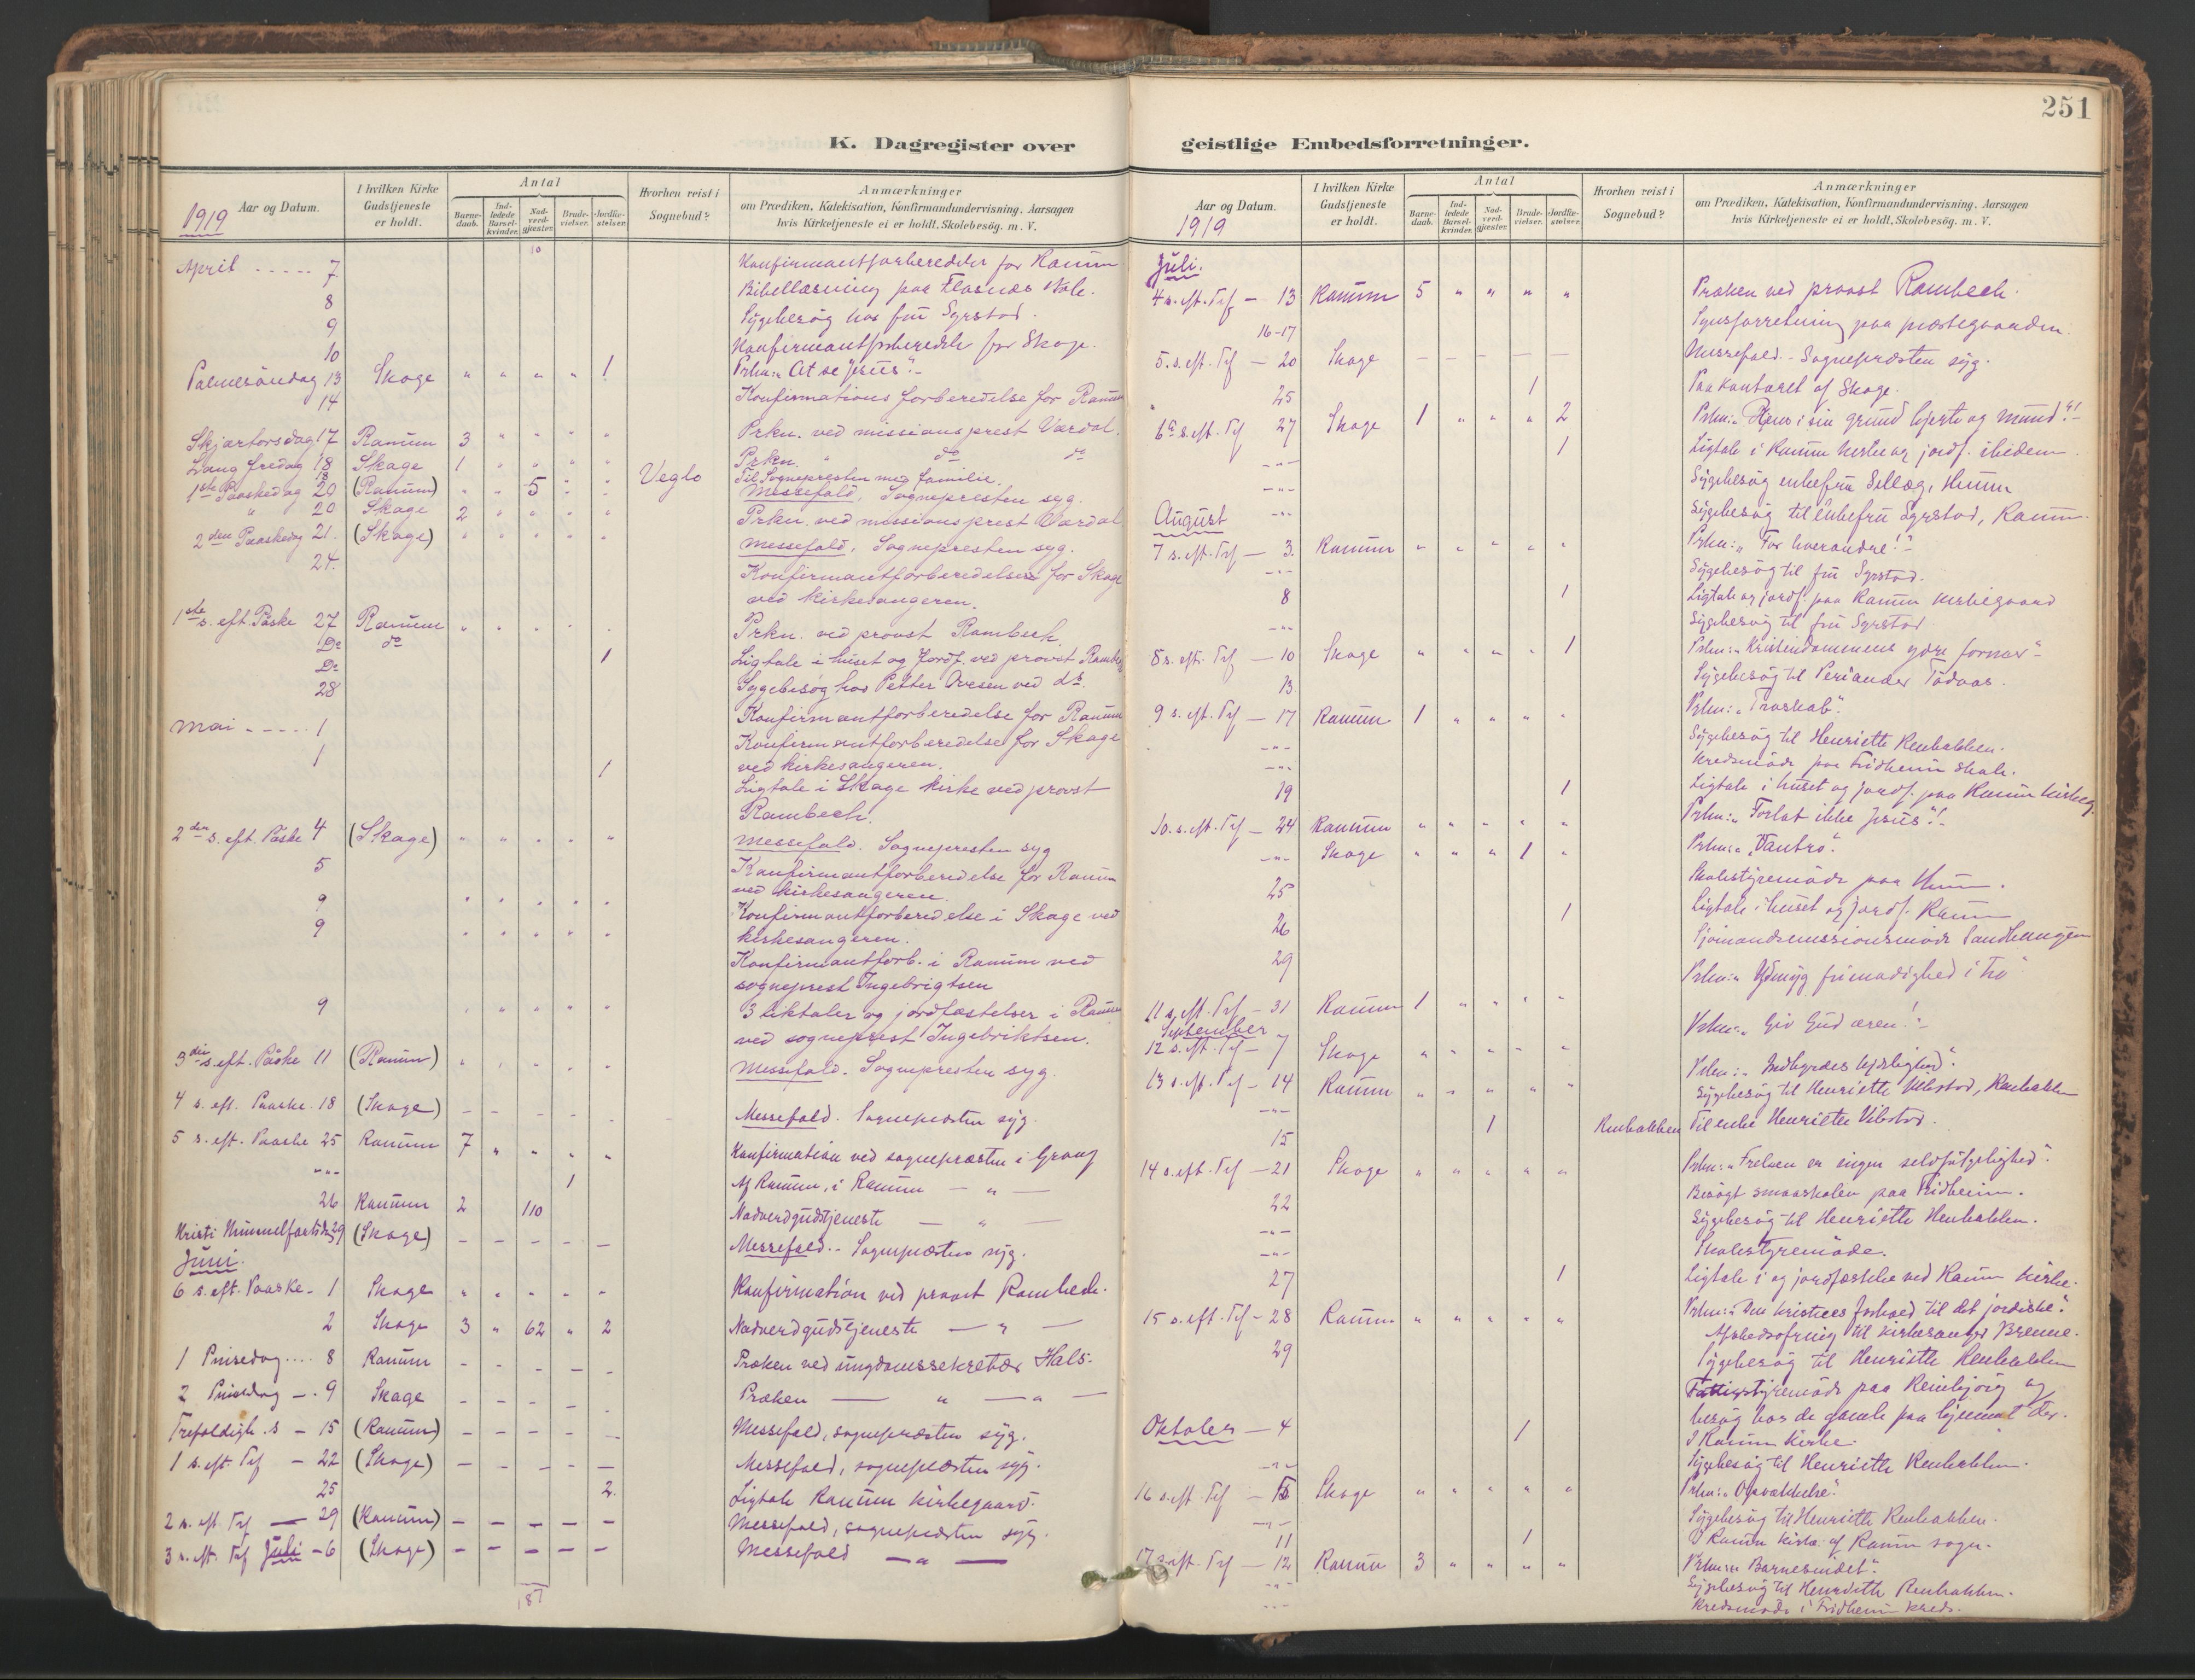 251
K. Dagregister over
1919 Aar og Datum.
I hvilken Kirke Gudstjeneste er holdt.
Antal
Barne-daab.
Ind-ledede Barsel-kvinder.
Nad-verd-gjæster.
Brude-vielser.
Jordfæ-stelser.
Hvorhen reist i Sognebud?
Anmærkninger
om Prædiken, Katekisation, Konfirmandundervisning. Aarsagen
hvis Kirketjeneste ei er holdt. Skolebesøg. m. V.
10
April ..... 7 Konfirmantforberedelse for Ranum
8 Bibellæsning paa Flasnæs skole.
9 Sygebesøg hos fru Syrstad.
10 Konfirmantforberedelse for Skage.
Palmesøndag 13 Skage " " " " 1 Prkn: "At se Jesus!"
14 Konfirmations forberedelse for Ranum
Skjærtorsdag 17 Ranum 3 " " " " Prkn. ved missionsprest Værdal.
Lang fredag 18 Skage 1 " " " " Prkn. " do do
18 5 Veglo Til Sognepresten med familie.
1ste Paaskedag 20 (Ranum) " " " " Messefald, Sognepresten syg.
" 20 Skage 2 " " " " Prkn. ved missionsprest Værdal
2den Paaskedag 21. (Skage) " " " " " Messefald, Sognepresten syg.
24. Konfirmantforberedelse for Skage
ved kirkesangeren.
1ste s. eft. Påske 27 Ranum " " " " " Prkn. ved provst Rambech
Do do 1 Ligtale i huset og Jordf. ved provst Rambech
Do Sygebesøg hos Petter Ovesen ved do.
28 Konfirmantforberedelse for Ranum
Mai ..... 1 Konfirmantforberedelse for Skage
ved kirkesangeren.
1 1 Ligtale i Skage kirke ved provst
Rambech.
2den s. eft. Påske 4 (Skage) " " " " " Messefald. Sognepresten syg
5 Konfirmantforberedelse for Ranum
ved kirkesangeren.
9 " " " " " Konfirmantforberedelse i Skage ved
kirkesangeren.
9 " " " " " Konfirmantforb. i Ranum ved
sogneprest Ingebrigtsen
9 " " " " " 3 liktaler og jordfæstelser i Ranum
ved sogneprest Ingebriktsen.
3die s. eft. Påske 11 (Ranum) " " " " " Messefald. Sognepresten syg.
4 s. eft. Paaske. 18 (Skage) – – – – Messefald. Sognepræsten syg.
5 s. eft. Paaske 25 Ranum 7 " " " " Konfirmation ved sognepræsten i Grong
" " " 1 Af Ranum, i Ranum – " –
26 Ranum 2 110 Nadverdgudstjeneste – " –
Kristi Himmelfartsd. 29 (Skage) – – – – – Messefald. - Sognepræsten syg.
Juni.
6 s. eft. Paaske - 1 Skage " " " " " Konfirmation ved provst Rambech.
2 Skage 3 " 62 " 2 Nadverdgudstjeneste – " –
1 Pinsedag .... 8 Ranum – – – – – Præken ved ungdomssekretær Hals.
2 Pinsedag – . 9 Skage – – – – – Præken – " – " –
Trefoldigh. s – 15 (Ranum) – – – – – Messefald, sognepræsten syg.
1 s. eft. Tref – 22 (Skage) – – – – – Messefald, sognepræsten syg.
25 2. Ligtale Ranum kirkegaard.
2 s. eft. Tref – 29 (Ranum) – – – – – Messefald, sognepræsten syg.
3 s. eft. Tref Juli – 6 (Skage) – – – – – Messefald – " –
187
geistlige Embedsforretninger.
Aar og Datum. 1919
I hvilken Kirke Gudstjeneste er holdt.
Antal
Barne-daab.
Ind-ledede Barsel-kvinder.
Nad-verd-gjæster.
Brude-vielser.
Jordfæ-stelser.
Hvorhen reist i Sognebud?
Anmærkninger
om Prædiken, Katekisation, Konfirmandundervisning. Aarsagen
hvis Kirketjeneste ei er holdt. Skolebesøg. m. V.
Juli.
4 s. eft. Tref – 13 Ranum 5 " " " " Præken ved provst Rambech.
16-17 Synsforretning paa præstegaarden.
5. s. eft. Tref – 20 Skage – – – – – Messefald. - Sognepræsten syg.
25 1 Paa kontoret af Skage.
6te s. eft. Tref 27 Skage 1 " " " 2 Prkn: "Ren i sin grund hjerte og mund"!
– " – 1 Ligtale i Ranum kirke og jordf.
– " – Sygebesøg enkefru Sellæg, Hunn
August – " – Sygebesøg til enkefru Syrstad, Ranum.
7 s. eft. Tref – 3. Ranum " " " " " Prkn: "For hverandre!"
– " – Sygebesøg til fru Syrstad.
8 1 Ligtale og jordf. paa Ranum kirkegaard
– " – Sygebesøg til fru Syrstad
8 s. eft. Tref – 10 Skage " " " " 1 Prkn: "Kristendommens ydre former"
13 Sygebesøg til Periander Tødaas.
9 s. eft. Tref – 17 Ranum 1 " " " " Prkn: "Troskab".
– " – Sygebesøg til Henriette Renbakken.
– " – Kredsmøde paa Fridheim skole.
19 1 Ligtale i huset og jordf. paa Ranum kirkeg.
10. s. eft. Tref – 24 Ranum " " " " " Prkn: "Forlat ikke Jesus"!
– " – Skage " " " 1 " Prkn: "Vantro".
25 Skolestyremøde paa Hunn.
26 1 Ligtale i huset og jordf. Ranum
29 Sjømandsmissionsmøde Sandhaugen
11 s. eft. Tref – 31 Ranum 1 " " " " Prkn: "Ydmyg frimodighed i tro"
September
12 s. eft. Tref – 7 Skage " " " " " Prkn: "Giv Gud æren!"
13 s. eft. Tref – 14 Ranum " " " " " Prkn: "Indbyrdes kjærlighed".
– " – Sygebesøg til Henriette Vibstad, Renbakken
15 1 Renbakken Til enke Henriette Vibstad.
14 s. eft. Tref – 21 Skage " " " " " Prkn: "Frelsen er ingen selvfølgelighed".
22 Besøgt smaaskolen paa Fridheim.
– " – Sygebesøg til Henriette Renbakken.
– " – Skolestyremøde.
27 1 Ligtale i og jordfæstelse ved Ranum kirke.
15 s. eft. Tref – 28 Ranum " " " " " Prkn: "Den kristnes forhold til det jordiske".
Afskedsofring til kirkesanger Brenne.
29 Sygebesøg til Henriette Renbakken
Fattigstyremøde paa Reinbjørg og
besøg hos de gamle paa hjemmet der.
Oktober – 4 1 I Ranum kirke.
– " – Sygebesøg til Henriette Renbakken.
16 s. eft. Tref – 5 Skage " " " " " Prkn: "Opvækkelse".
– " – Sygebesøg til Henriette Renbakken.
11 1 I Ranum kirke af Ranum sogn.
17 s. eft. Tref – 12 Ranum 3 " " " " Prkn: "Barnesindet".
– " – Sygebesøg til Henriette Renbakken.
– " – Kredsmøde i Fridheim kreds.